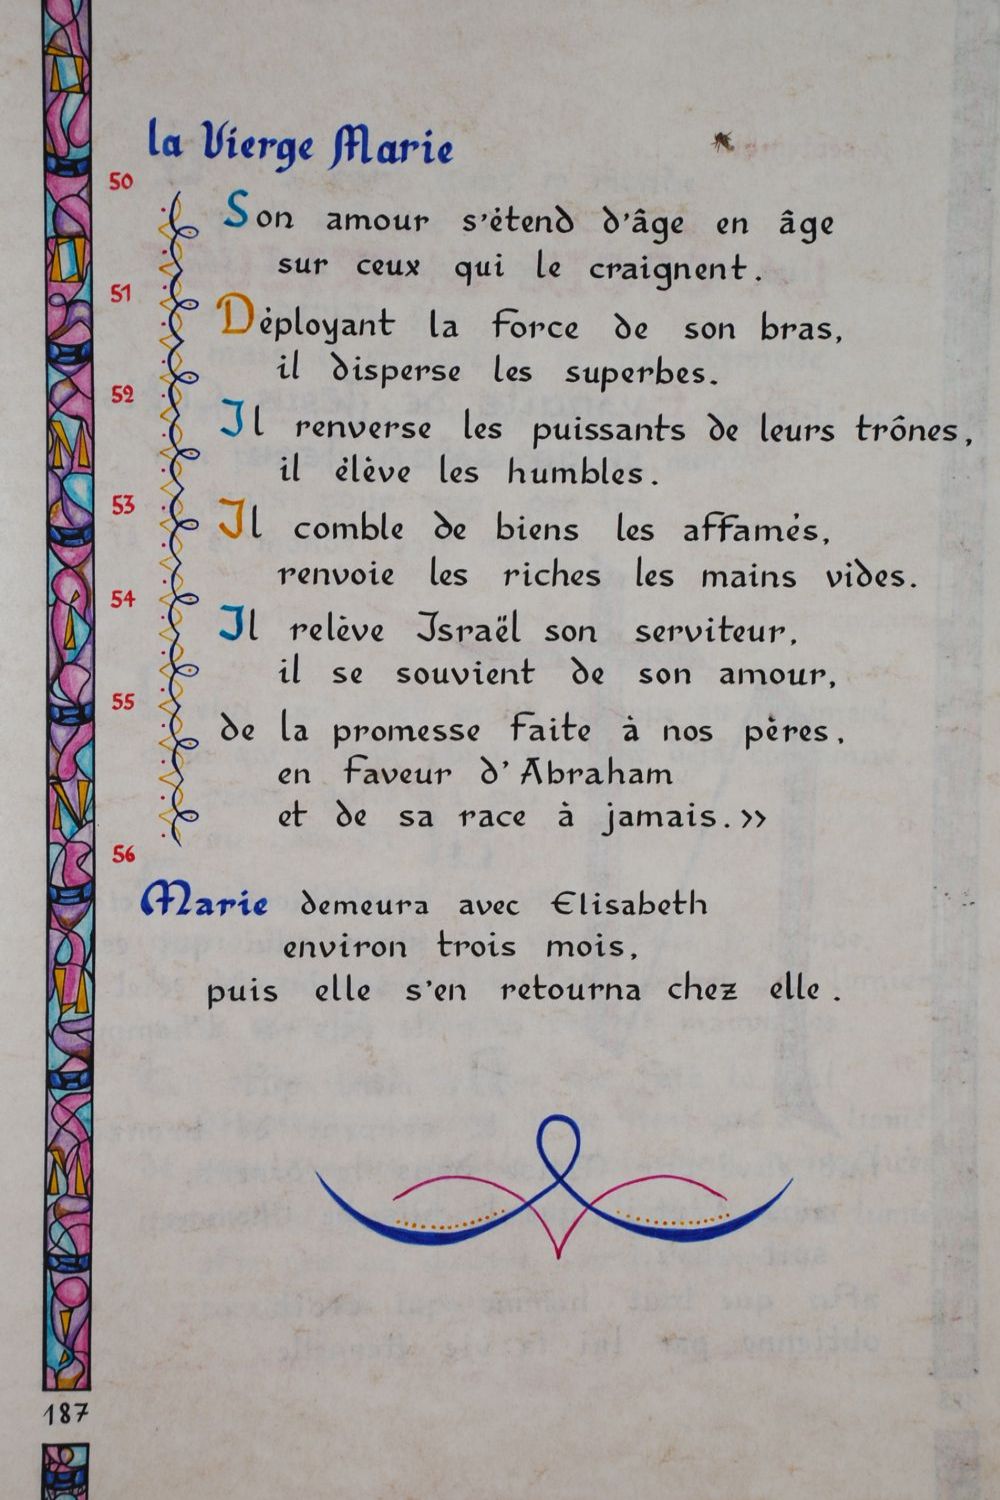 la Vierge Marie
50
Son amour s'étend d'âge en âge
sur ceux qui le craignent.
51
Déployant la force de son bras,
il disperse les superbes.
52
Il renverse les puissants de leurs trônes,
il élève les humbles.
53
Il comble de biens les affamés,
renvoie les riches les mains vides.
54
Il relève Israël son serviteur,
il se souvient de son amour,
55
de la promesse faite à nos pères,
en faveur d'Abraham
et de sa race à jamais.»
56
Marie demeura avec Elisabeth
environ trois mois,
puis elle s'en retourna chez elle.
187